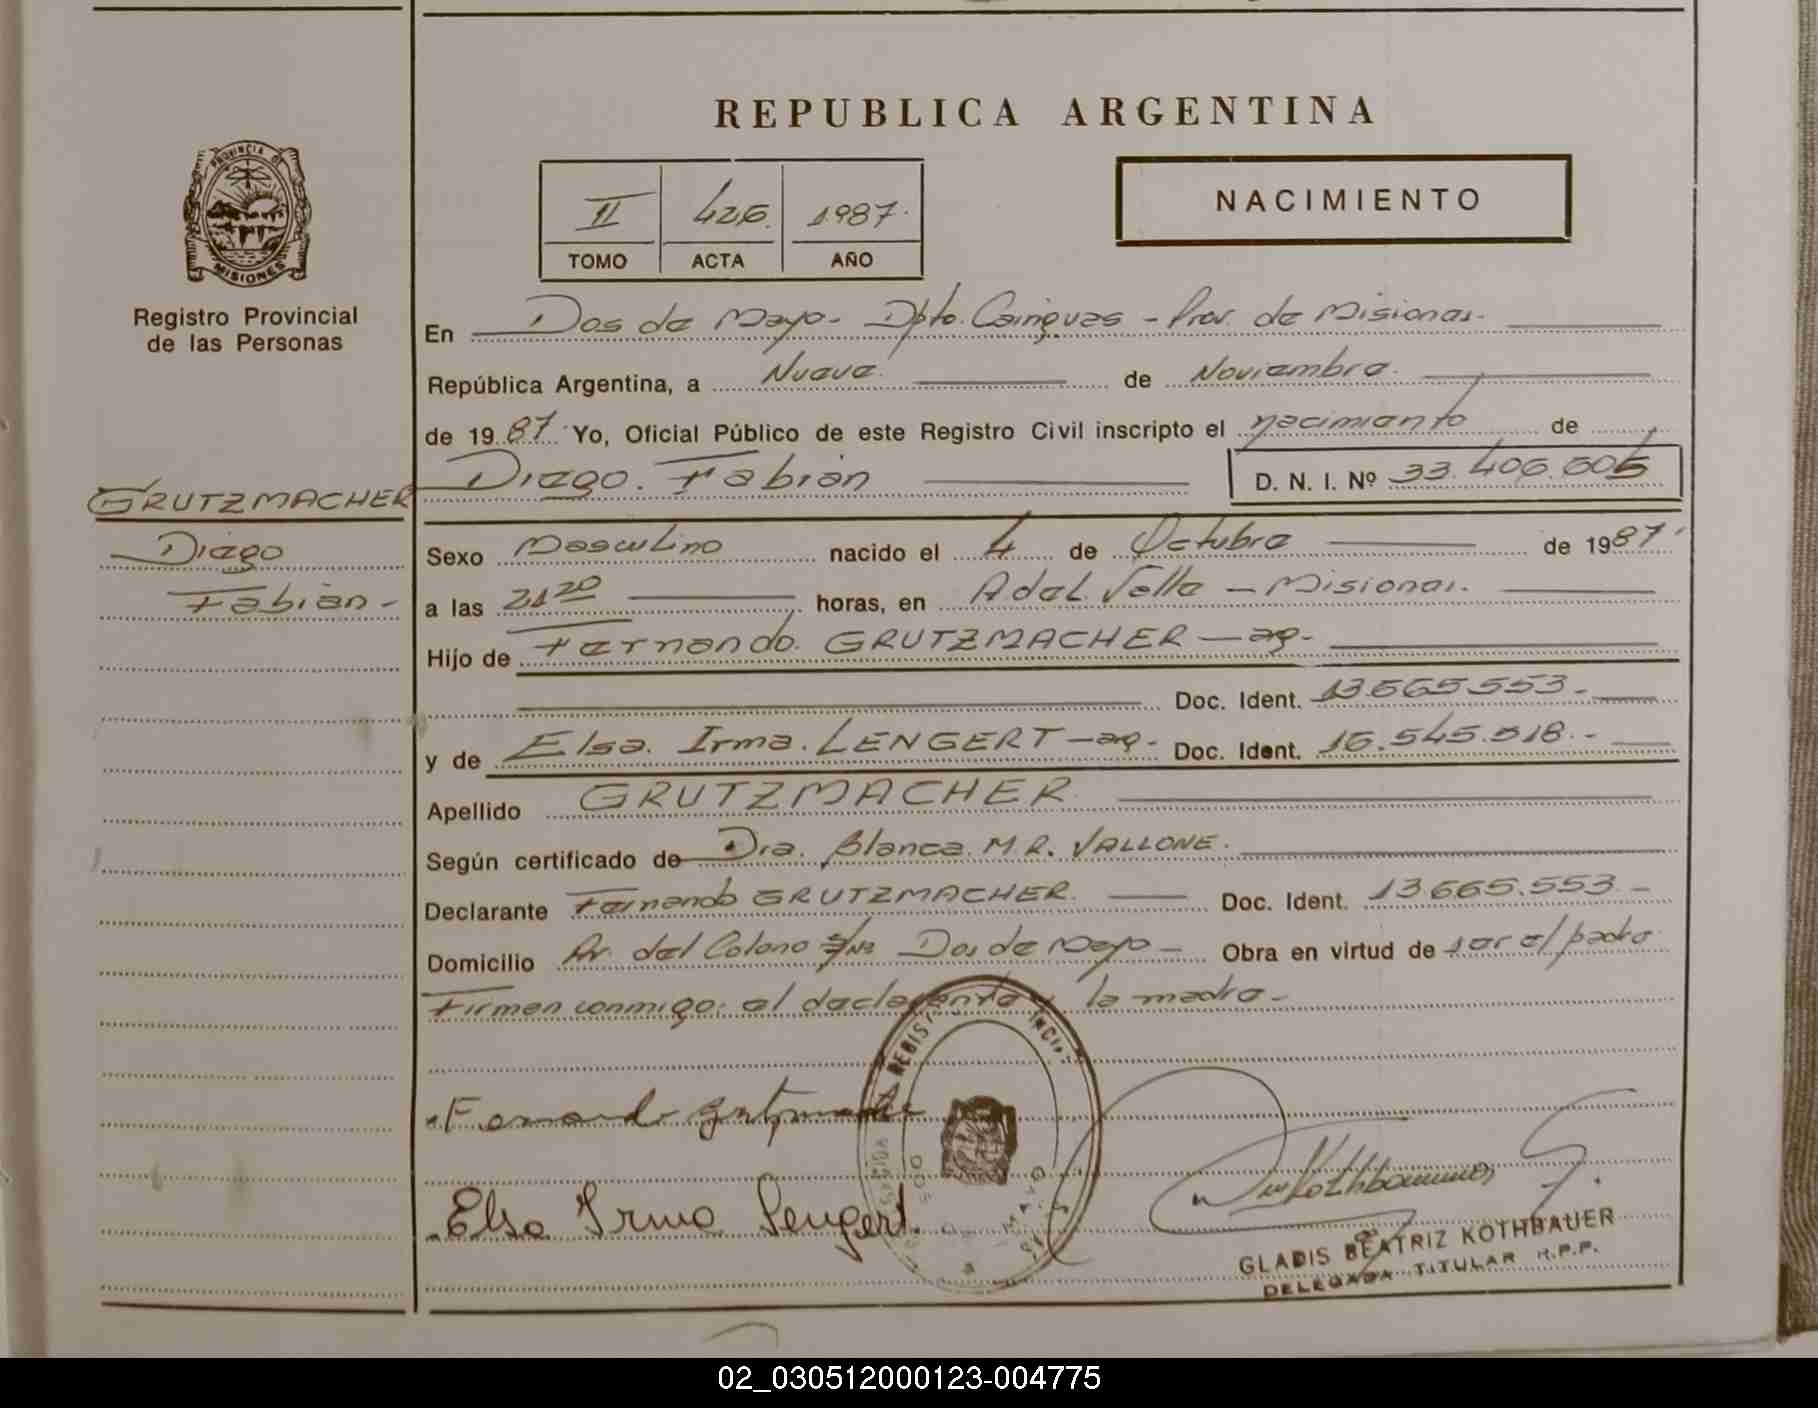 REPUBLICA ARGENTINA
PROVINCIA DE
MISIONES
Registro Provincial
de las Personas
II 426. 1987.
TOMO ACTA AÑO
NACIMIENTO
En Dos de Mayo - Dpto. Cainguas - Prov. de Misiones.
República Argentina, a Nueve de Noviembre.
de 1987 Yo, Oficial Público de este Registro Civil inscripto el nacimiento de
Diego. Fabián D. N. I. Nº 33.406.605
GRUTZMACHER
Diego
Fabián -
Sexo Masculino nacido el 4 de Octubre de 1987
a las 21 20 horas, en A del Valle - Misiones.
Hijo de Fernando. GRUTZMACHER - ag.
Doc. Ident. 13.665.553.-
y de Elsa. Irma. LENGERT - ag. Doc. Ident. 16.545.518.-
Apellido GRUTZMACHER
Según certificado de Dra. Blanca M.R. VALLONE.
Declarante Fernando GRUTZMACHER. Doc. Ident. 13.665.553.-
Domicilio Av. del Colono s/nº Dos de Mayo - Obra en virtud de ser el padre
Firman conmigo: el declarante y la madre -
Fernando Grutzmacher
Elsa Irma Lengert.
DOS DE MAYO
GLADIS BEATRIZ KOTHBAUER
DELEGADA TITULAR R.P.P.
02_030512000123-004775